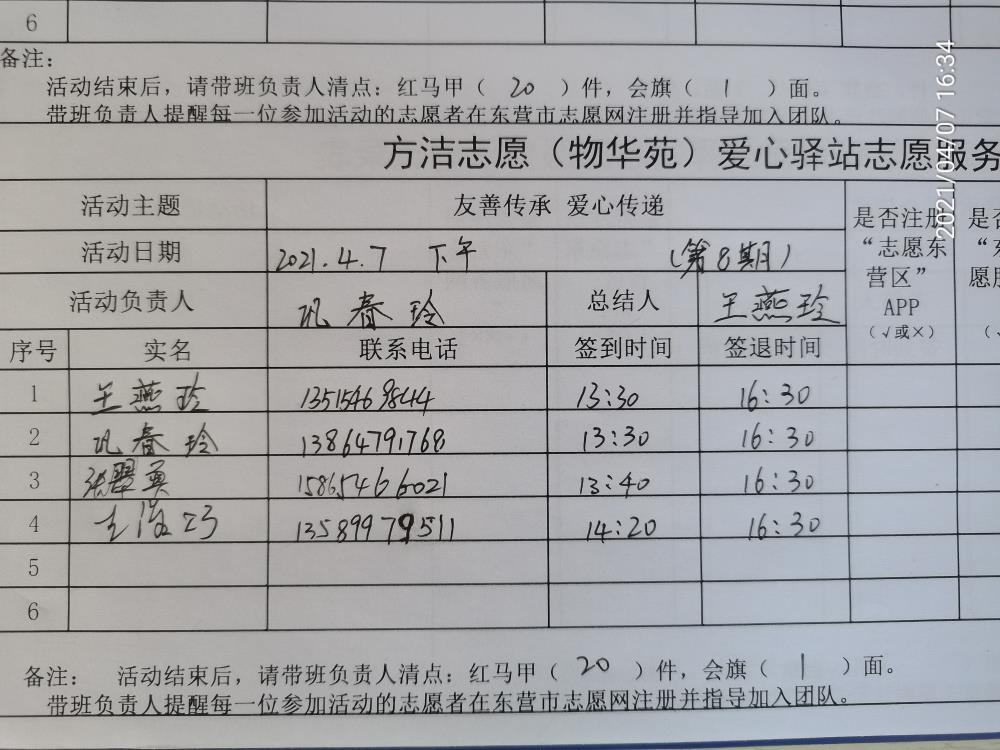 6
备注:
活动结束后，请带班负责人清点：红马甲（ 20 ）件，会旗（ 1 ）面。
带班负责人提醒每一位参加活动的志愿者在东营市志愿网注册并指导加入团队。
2021/04/07 16:34
方洁志愿（物华苑）爱心驿站志愿服务
活动主题 友善传承 爱心传递 是否注册“志愿东营区”APP（√或×） 是否
活动日期 2021.4.7 下午 （第8期）
活动负责人 巩春玲 总结人 王燕玲
序号 实名 联系电话 签到时间 签退时间
1 王燕玲 13515469844 13:30 16:30
2 巩春玲 13864791768 13:30 16:30
3 张翠英 15865466021 13:40 16:30
4 13589979511 14:20 16:30
5
6
备注: 活动结束后，请带班负责人清点：红马甲（ 20 ）件，会旗（ 1 ）面。
带班负责人提醒每一位参加活动的志愿者在东营市志愿网注册并指导加入团队。